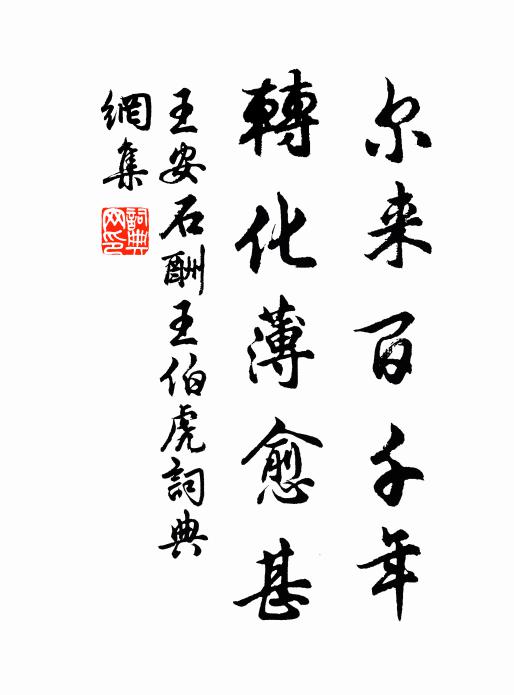 尔来百千年
轉化薄愈甚
王安石酬王伯虎詞典
網集
詞典网印